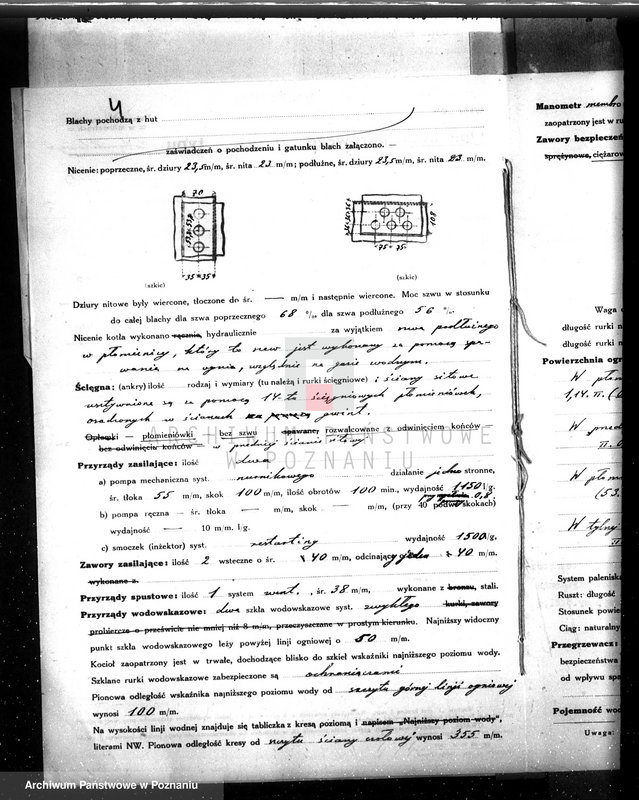 4
Blachy pochodzą z hut
zaświadczeń o pochodzeniu i gatunku blach załączono. —
Nicenie: poprzeczne, śr. dziury 23,5 m/m, śr. nita 23 m/m; podłużne, śr. dziury 23,5 m/m, śr. nita 23 m/m.
70
35 35
(szkic)
108
75 75
(szkic)
Dziury nitowe były wiercone, tłoczone do śr. — m/m i następnie wiercone. Moc szwu w stosunku
do całej blachy dla szwa poprzecznego 68 %, dla szwa podłużnego 56 %.
Nicenie kotła wykonano ręcznie, hydraulicznie za wyjątkiem szwa podłużnego
w płomienicy, który to szew jest wykonany za pomocą spa-
wania na ognia, względnie na gazie wodnym.
Ścięgna: (ankry) ilość rodzaj i wymiary (tu należą i rurki ścięgniowe) i ściany sitowe
usztywnione są za pomocą 14-tu ścięgniowych płomieniówek,
osadzonych w ścianach gwint.
Opłomki — płomieniówki — bez szwu spawane, rozwalcowane z odwinięciem końców —
bez odwinięcia końców — w przedniej ścianie sitowej
Przyrządy zasilające: ilość dwa
a) pompa mechaniczna syst. nurnikowego działanie jedno stronne,
śr. tłoka 55 m/m, skok 100 m/m, ilość obrotów 100 min., wydajność 1150 l/g.
b) pompa ręczna — śr. tłoka — m/m, skok — m/m, (przy 40 podw. skokach)
wydajność — 10 m/m. l/g.
c) smoczek (inżektor) syst. restarting wydajność 1500 l/g.
Zawory zasilające: ilość 2 wsteczne o śr. 40 m/m, odcinający jeden 40 m/m.
wykonane z.
Przyrządy spustowe: ilość 1 system went., śr. 38 m/m, wykonane z bronzu, stali.
Przyrządy wodowskazowe: dwa szkła wodowskazowe syst. zwykłego kurki, zawory
probiercze o prześwicie nie mniej niż 8 m/m, przeczyszczane w prostym kierunku. Najniższy widoczny
punkt szkła wodowskazowego leży powyżej linji ogniowej o 50 m/m.
Kocioł zaopatrzony jest w trwałe, dochodzące blisko do szkieł wskaźniki najniższego poziomu wody.
Szklane rurki wodowskazowe zabezpieczone są ochraniaczami
Pionowa odległość wskaźnika najniższego poziomu wody od szczytu górnej linji ogniowej
wynosi 100 m/m.
Na wysokości linji wodnej znajduje się tabliczka z kresą poziomą i napisem „Najniższy poziom wody",
literami NW. Pionowa odległość kresy od szczytu ściany czołowej wynosi 355 m/m.
Manometr membro
zaopatrzony jest w ru
Zawory bezpieczeń
sprężynowe, ciężarow
Waga
długość rurki n
długość rurki
Powierzchnia ogr
W płom
1,14. π.
W przed
W płom
W tylnej
System paleniska
Ruszt: długość
Stosunek powie
Ciąg: naturalny
Przegrzewacz:
bezpieczeństwa
od wpływu spa
Pojemność wod
Uwaga:
ARCHIWUM PAŃSTWOWE
W POZNANIU
Archiwum Państwowe w Poznaniu